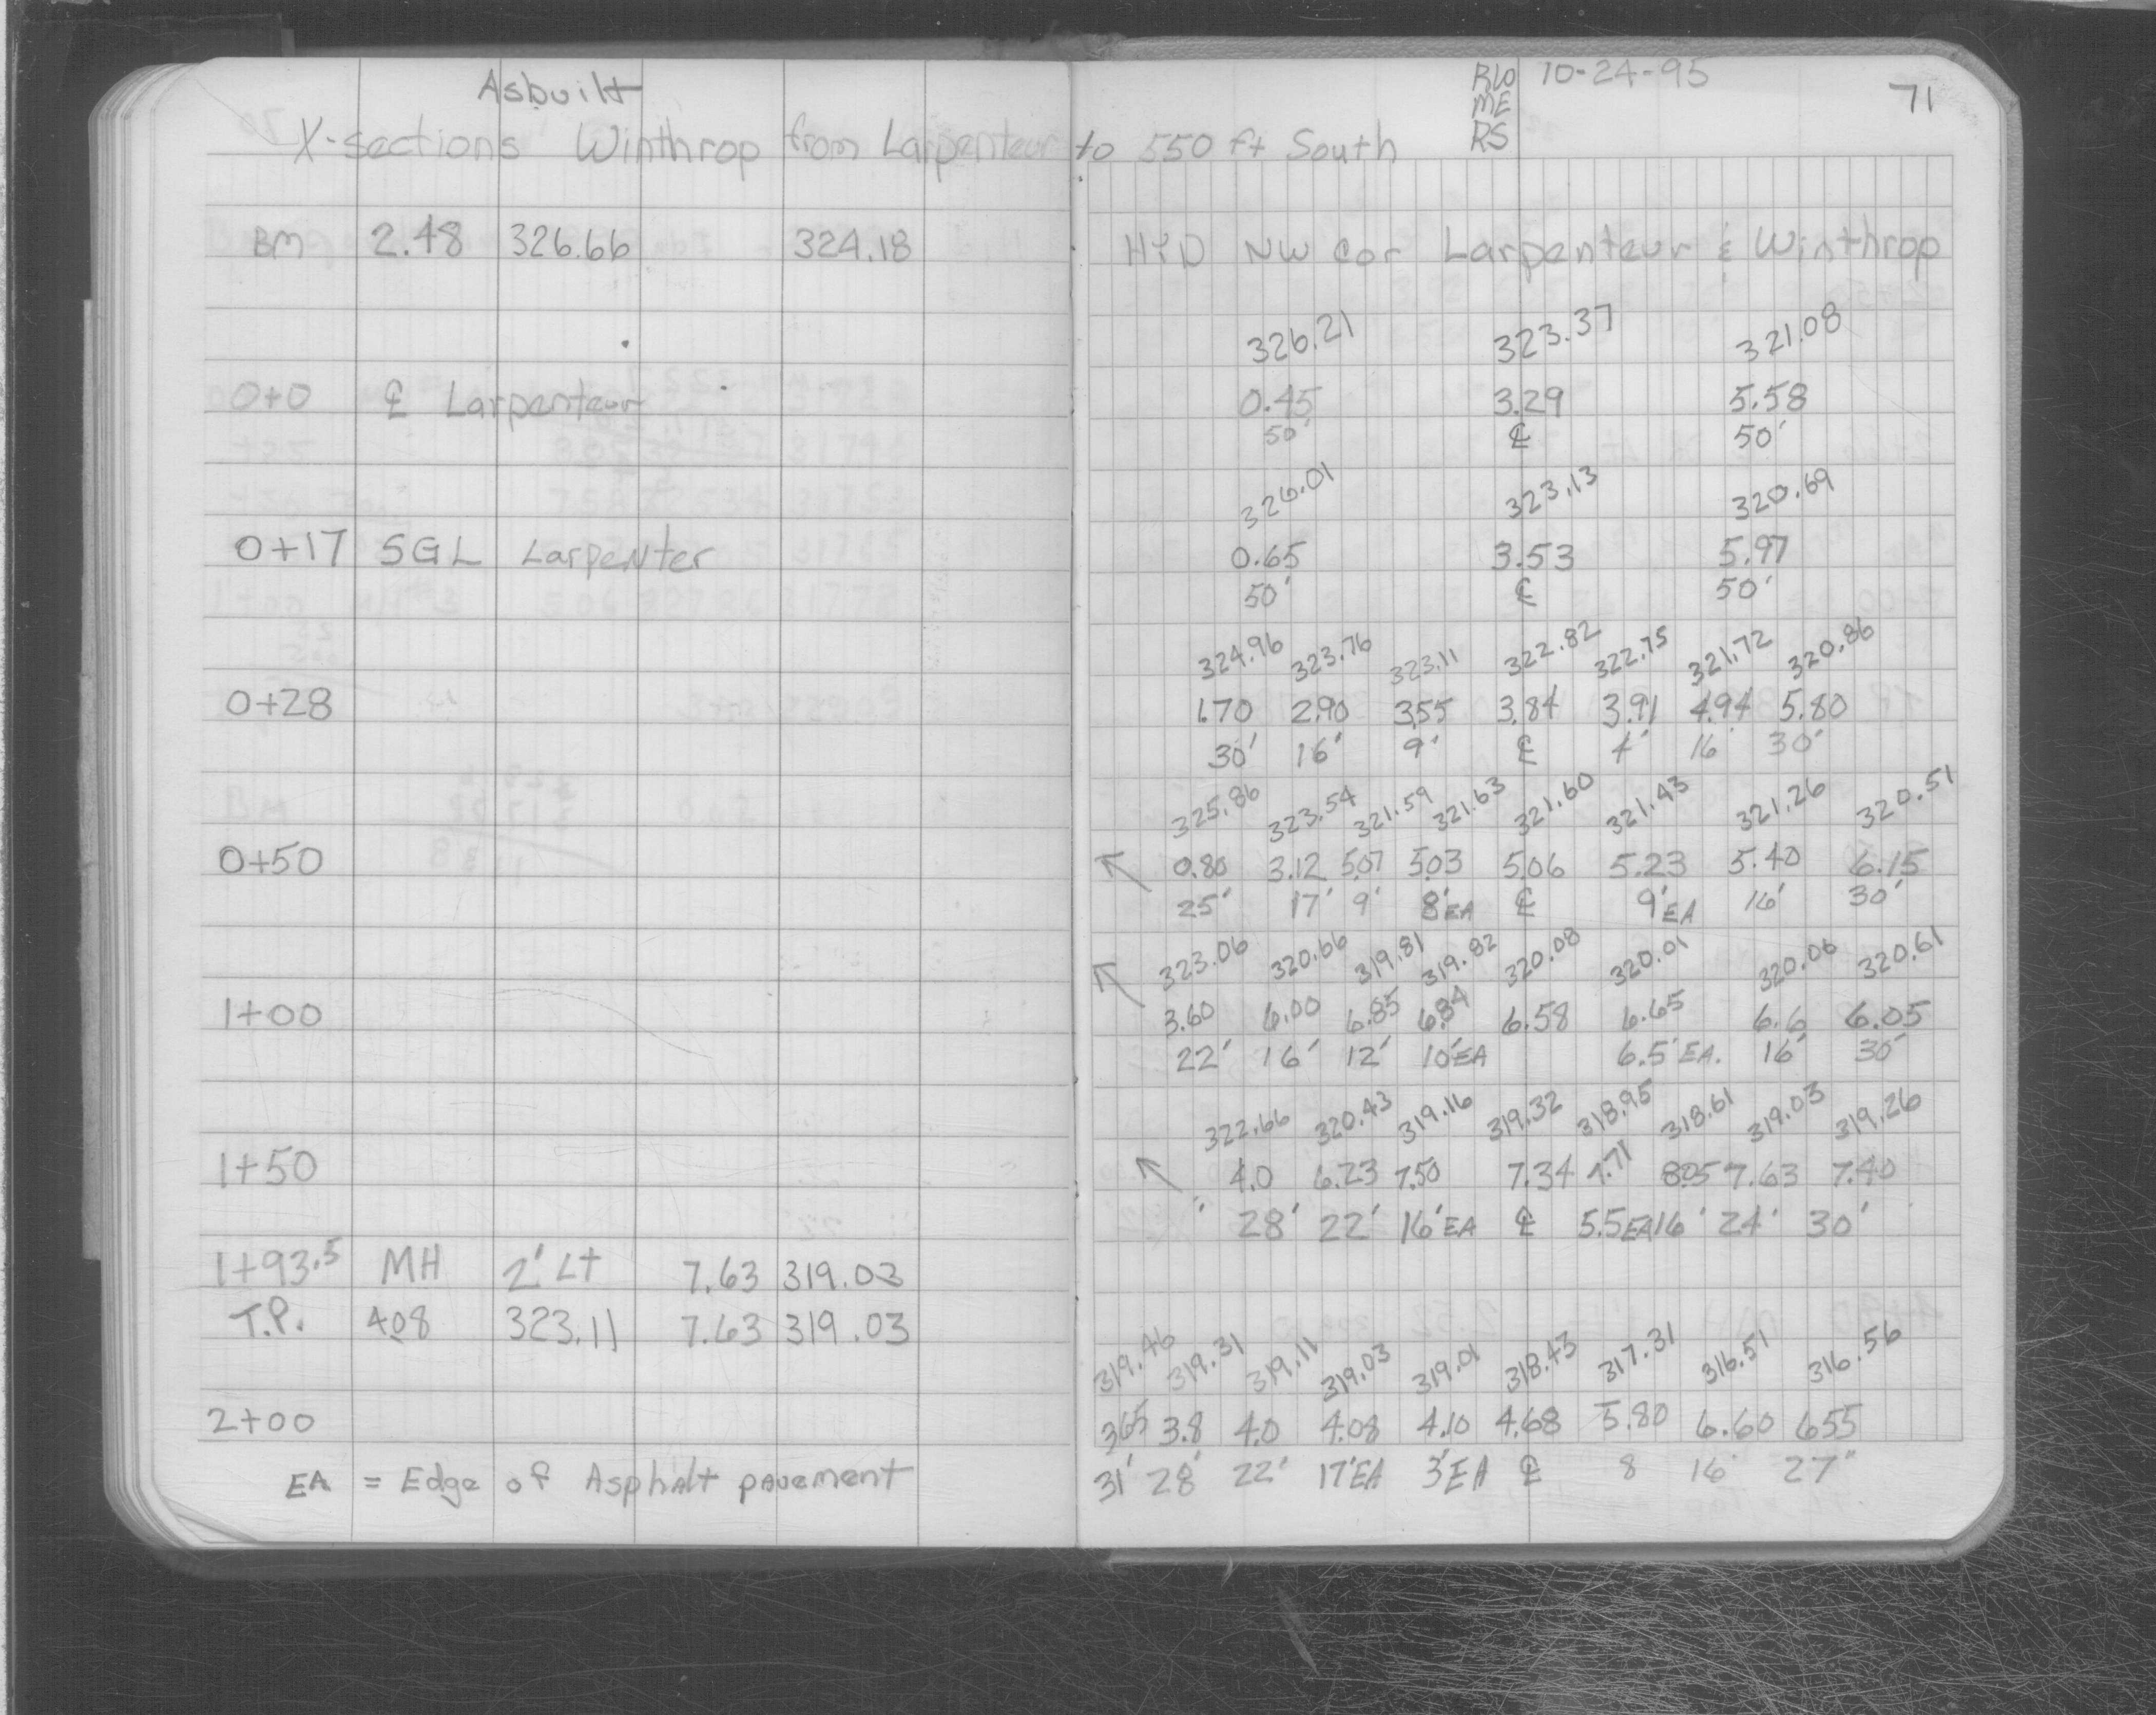 Asbuilt
X-sections Winthrop from Larpenteur to 550 ft South
RW 10-24-95
ME
RS
71
BM 2.48 326.66 324.18 HYD NW cor Larpenteur & Winthrop
326.21 323.37 321.08
0+0 ℄ Larpenteur 0.45 3.29 5.58
50' ℄ 50'
326.01 323.13 320.69
0+17 SGL Larpenter 0.65 3.53 5.97
50' ℄ 50'
324.96 323.76 323.11 322.82 322.75 321.72 320.86
0+28 1.70 2.90 3.55 3.84 3.91 4.94 5.80
30' 16' 9' ℄ 4' 16 30'
325.86 323.54 321.59 321.63 321.60 321.43 321.26 320.51
0+50 0.80 3.12 5.07 5.03 5.06 5.23 5.40 6.15
25' 17' 9' 8'EA ℄ 9'EA 16' 30'
323.06 320.66 319.81 319.82 320.08 320.01 320.06 320.61
1+00 3.60 6.00 6.85 6.84 6.58 6.65 6.6 6.05
22' 16' 12' 10'EA 6.5'EA. 16' 30'
322.66 320.43 319.16 319.32 318.95 318.61 319.03 319.26
1+50 4.0 6.23 7.50 7.34 7.71 8.05 7.63 7.40
28' 22' 16'EA ℄ 5.5EA 16' 24' 30'
1+93.5 MH 2' Lt 7.63 319.03
T.P. 4.08 323.11 7.63 319.03
319.46 319.31 319.11 319.03 319.01 318.43 317.31 316.51 316.56
2+00 3.65 3.8 4.0 4.08 4.10 4.68 5.80 6.60 6.55
31' 28' 22' 17'EA 3'EA ℄ 8 16' 27'
EA = Edge of Asphalt pavement